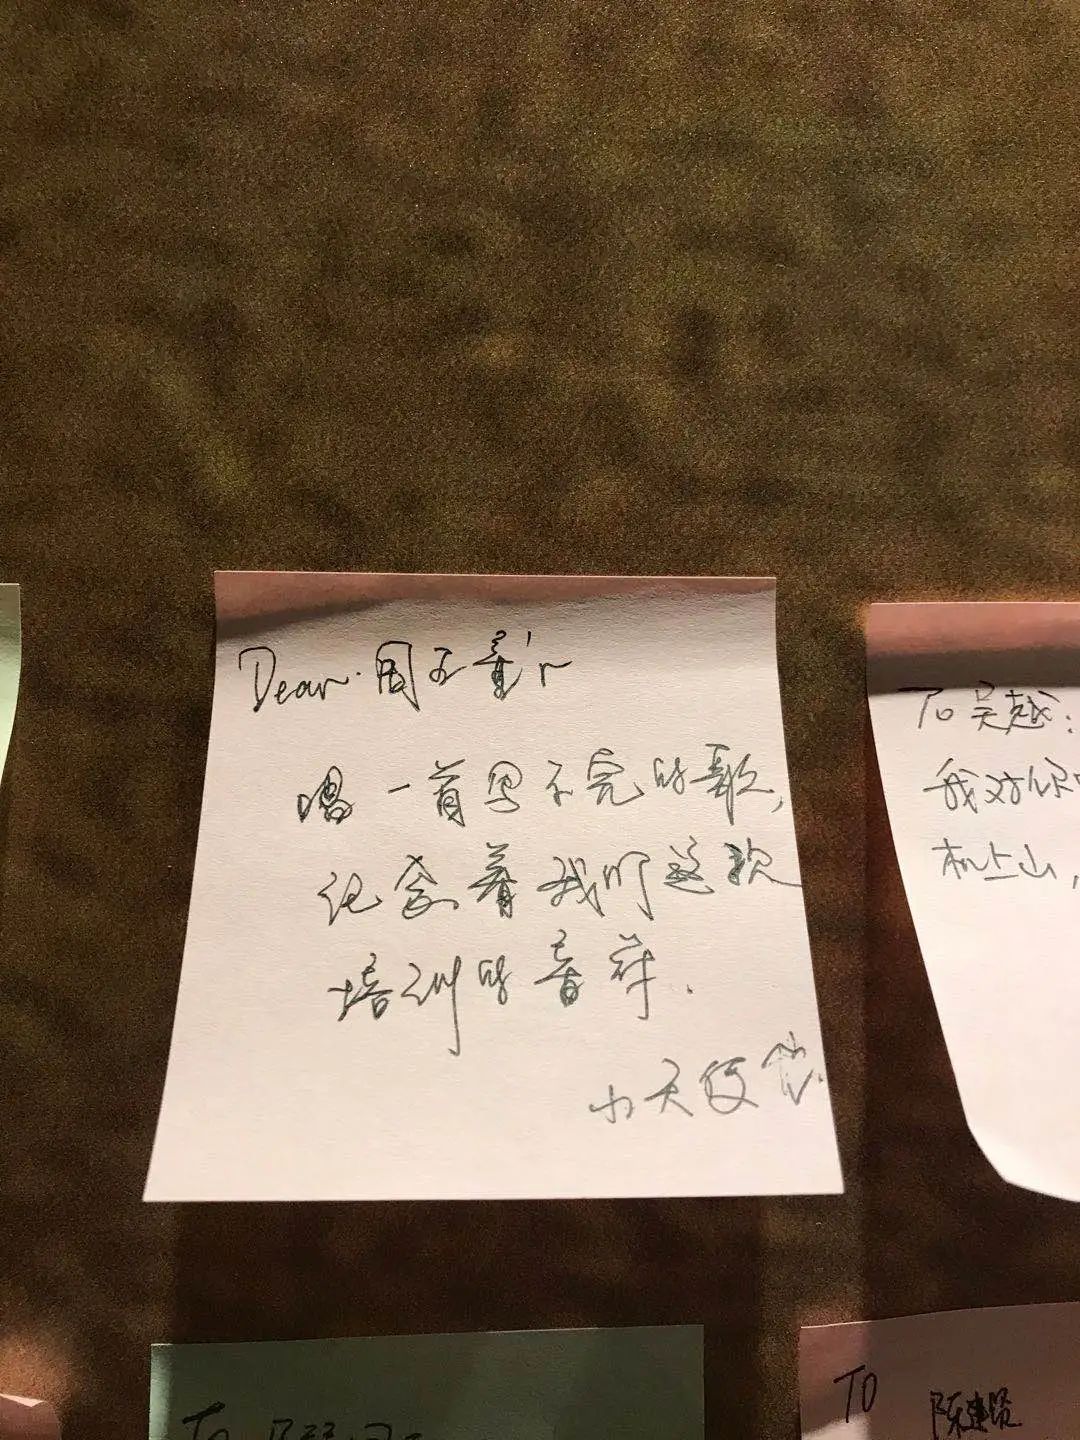 Dear. 周
唱一首写不完的歌,
纪念着我们这次
培训的音符.
小天使
To 吴越:
我对你
机上山,
To
TO 陈建贤